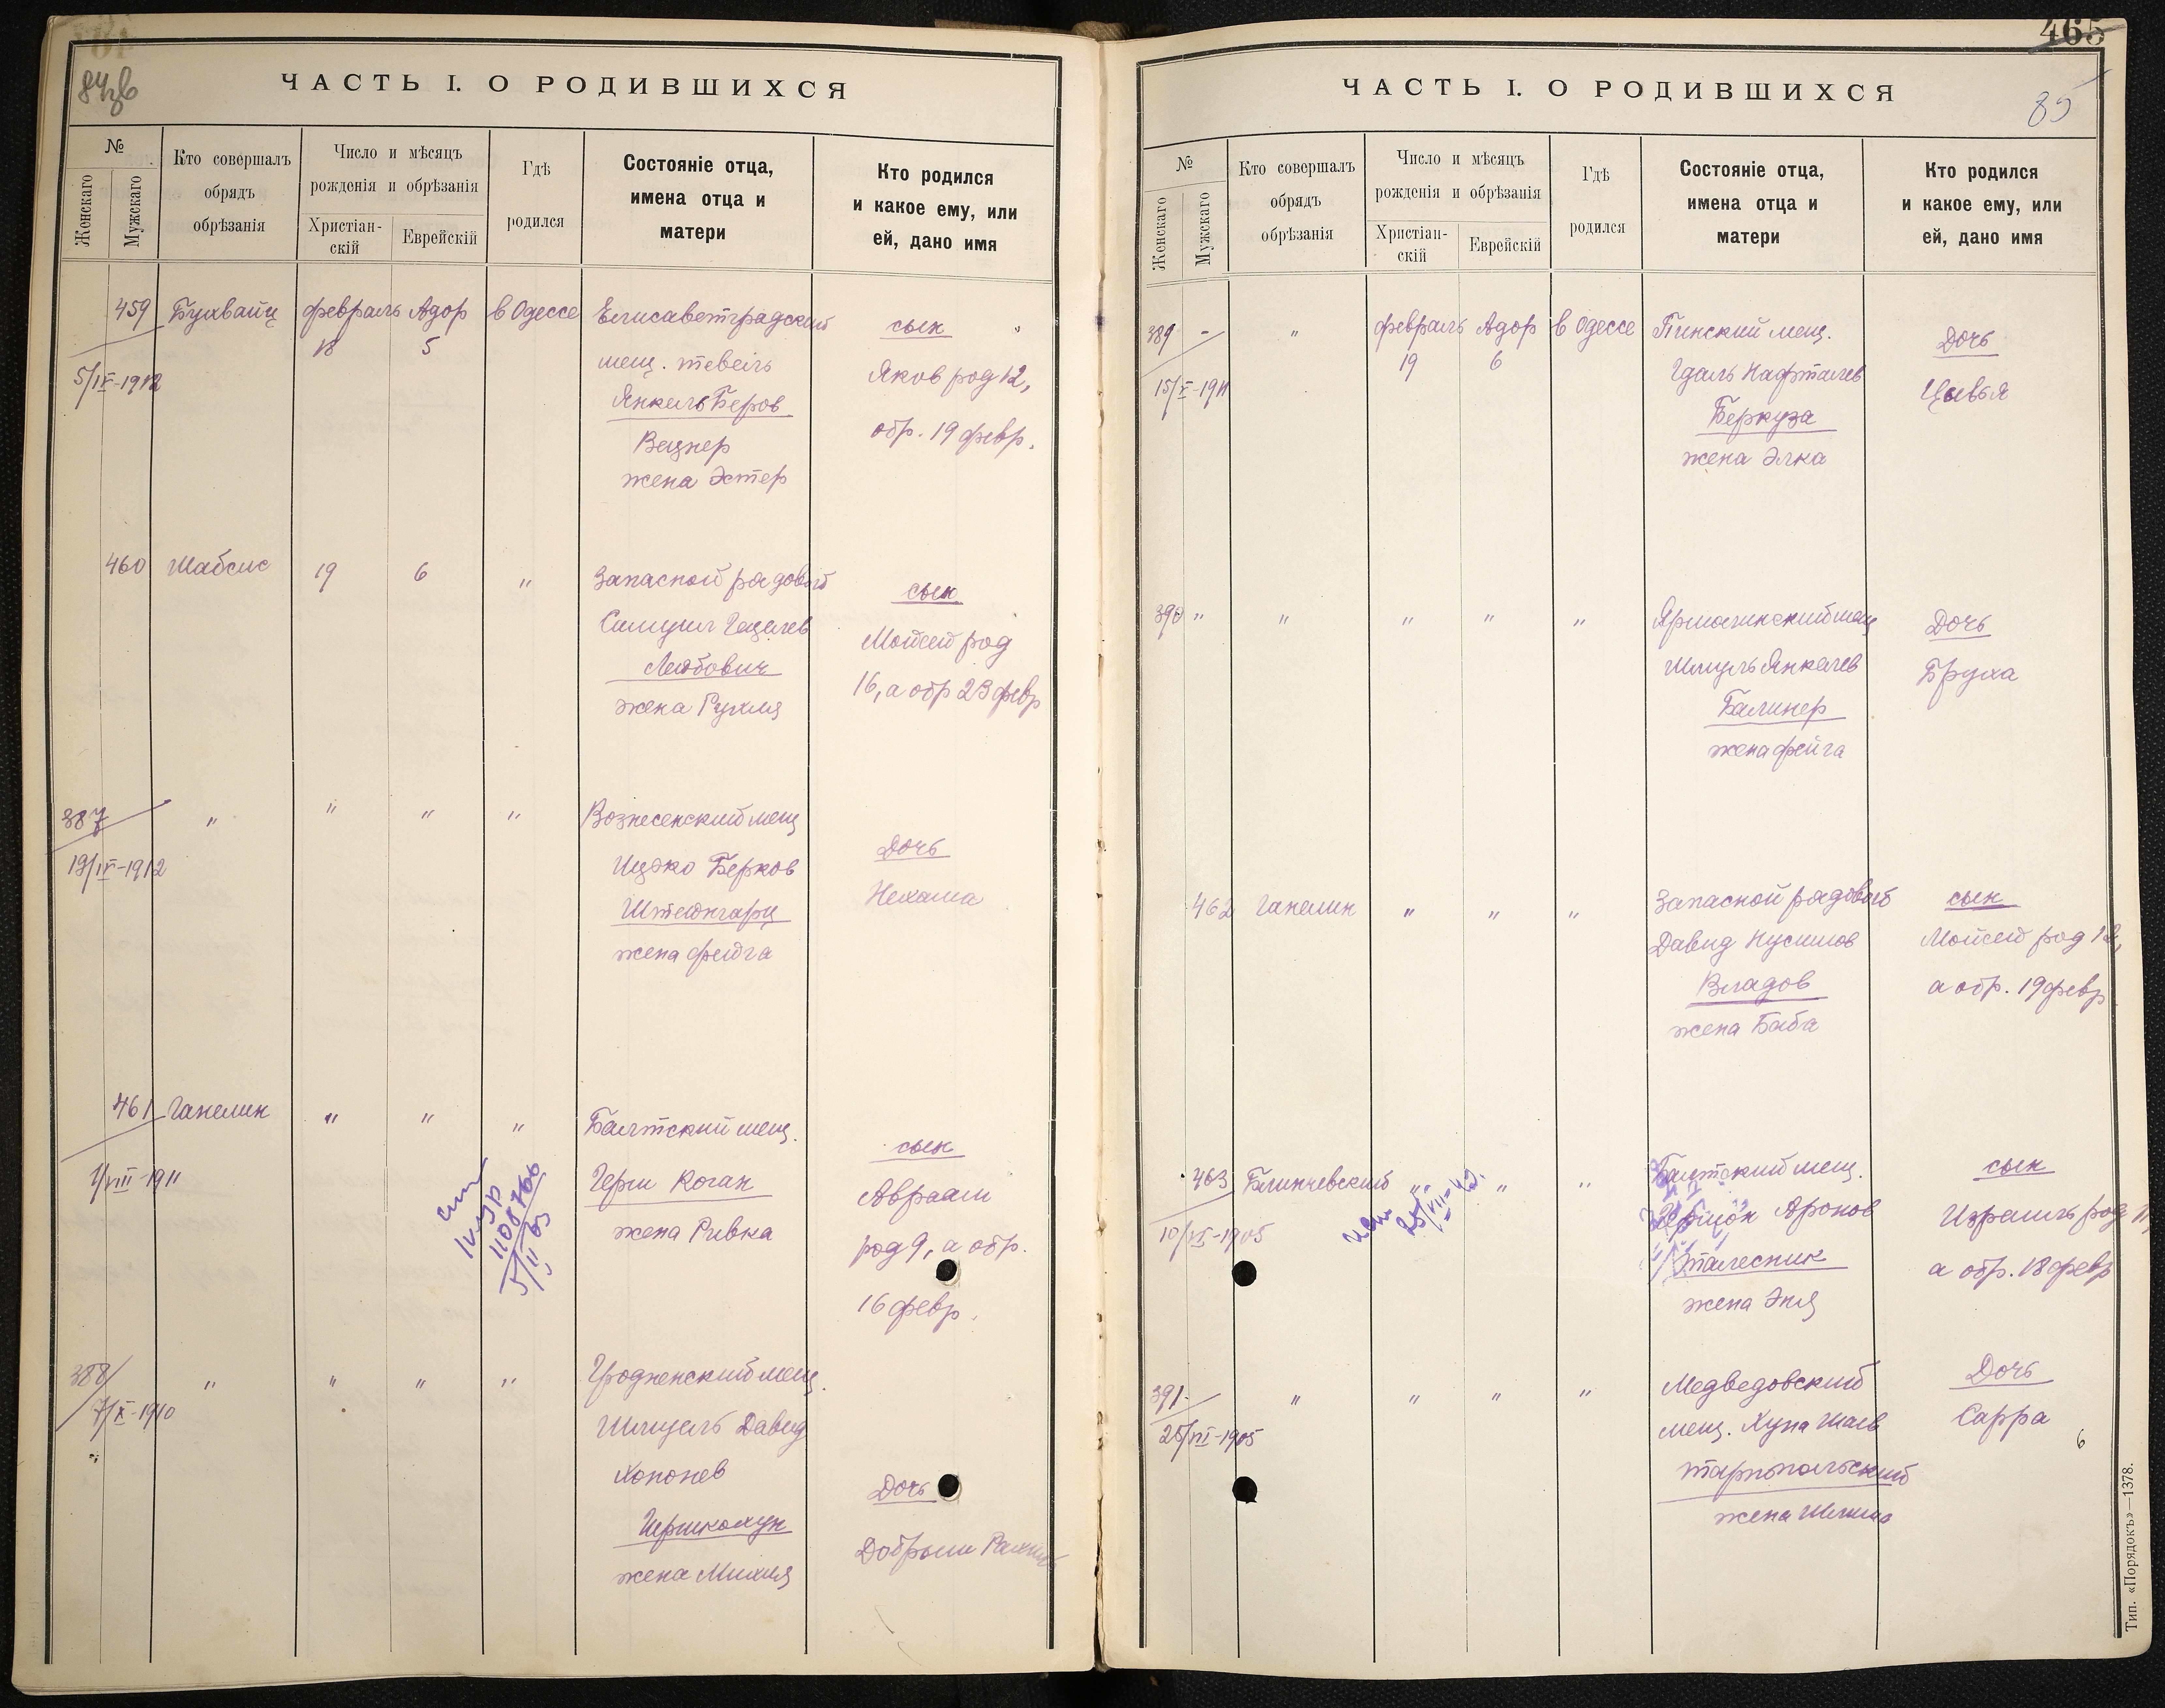 84
ЧАСТЬ I. О РОДИВШИХСЯ
№
Женскаго
Мужскаго
Кто совершалъ
обрядъ
обрѣзанія
Число и мѣсяцъ
рожденія и обрѣзанія
Христіан-
скій
Еврейскій
Гдѣ
родился
Состояніе отца,
имена отца и
матери
Кто родился
и какое ему, или
ей, дано имя
459 Бухвайц февраль Адор в Одессе Елисаветградский сын
18 5
5/IV-1912
мещ. Тевель
Янкель Беров
Вецнер
жена Эстер
Яков род 12,
обр. 19 февр.
460 Шабсис 19 6 " Запасной рядовой сын
Самуил Гацелев
Лейбович
жена Рухля
Мойсей род
16, а обр 23 февр
387 " " " " Вознесенский мещ
19/IV-1912
Ицко Берков
Штейнгарц
жена Фейга
Дочь
Нехама
461 Ганелин " " " Балтский мещ. сын
1/VIII-1911
Герш Коган
жена Ривка
Авраам
род 9, а обр.
16 февр.
1108766
388 " " " " Гродненский мещ.
7/X-1910
Шмуель Давид
Хононев
жена Михля
Дочь
465
ЧАСТЬ I. О РОДИВШИХСЯ
85
№
Женскаго
Мужскаго
Кто совершалъ
обрядъ
обрѣзанія
Число и мѣсяцъ
рожденія и обрѣзанія
Христіан-
скій
Еврейскій
Гдѣ
родился
Состояніе отца,
имена отца и
матери
Кто родился
и какое ему, или
ей, дано имя
389 - " февраль Адор в Одессе Пинский мещ. Дочь
19 6
15/V-1911
Гдаль Нафталев
Беркуза
жена Элка
Цывья
390 " " " " " Ярмолинский мещ Дочь
Шмуль Янкелев
Балинер
жена Фейга
Бруха
462 Ганелин " " " Запасной рядовой сын
Давид Нусимов
Владов
жена Баба
Мойсей род 12,
а обр. 19 февр
463 Блинчевский " " " Балтский мещ. сын
Аронов
Талесник
жена Эня
Израиль род 11,
а обр. 18 февр
391 " " " " Медведовский Дочь
мещ. Хуна Шаев
Тарнопольский
Сарра
6
Тип. «Порядокъ»—1378.